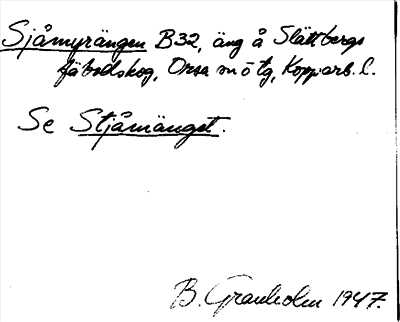 Sjåmyrängen B32, äng å Slättbergs
fäbodskog, Orsa m o tg, Kopparb. l.
Se Stjåmänget.
B. Granholm 1947.